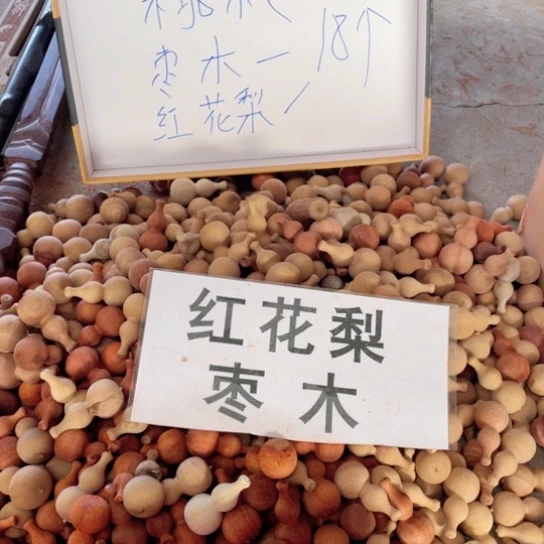 桃木
枣木一18个
红花梨
红花梨
枣木